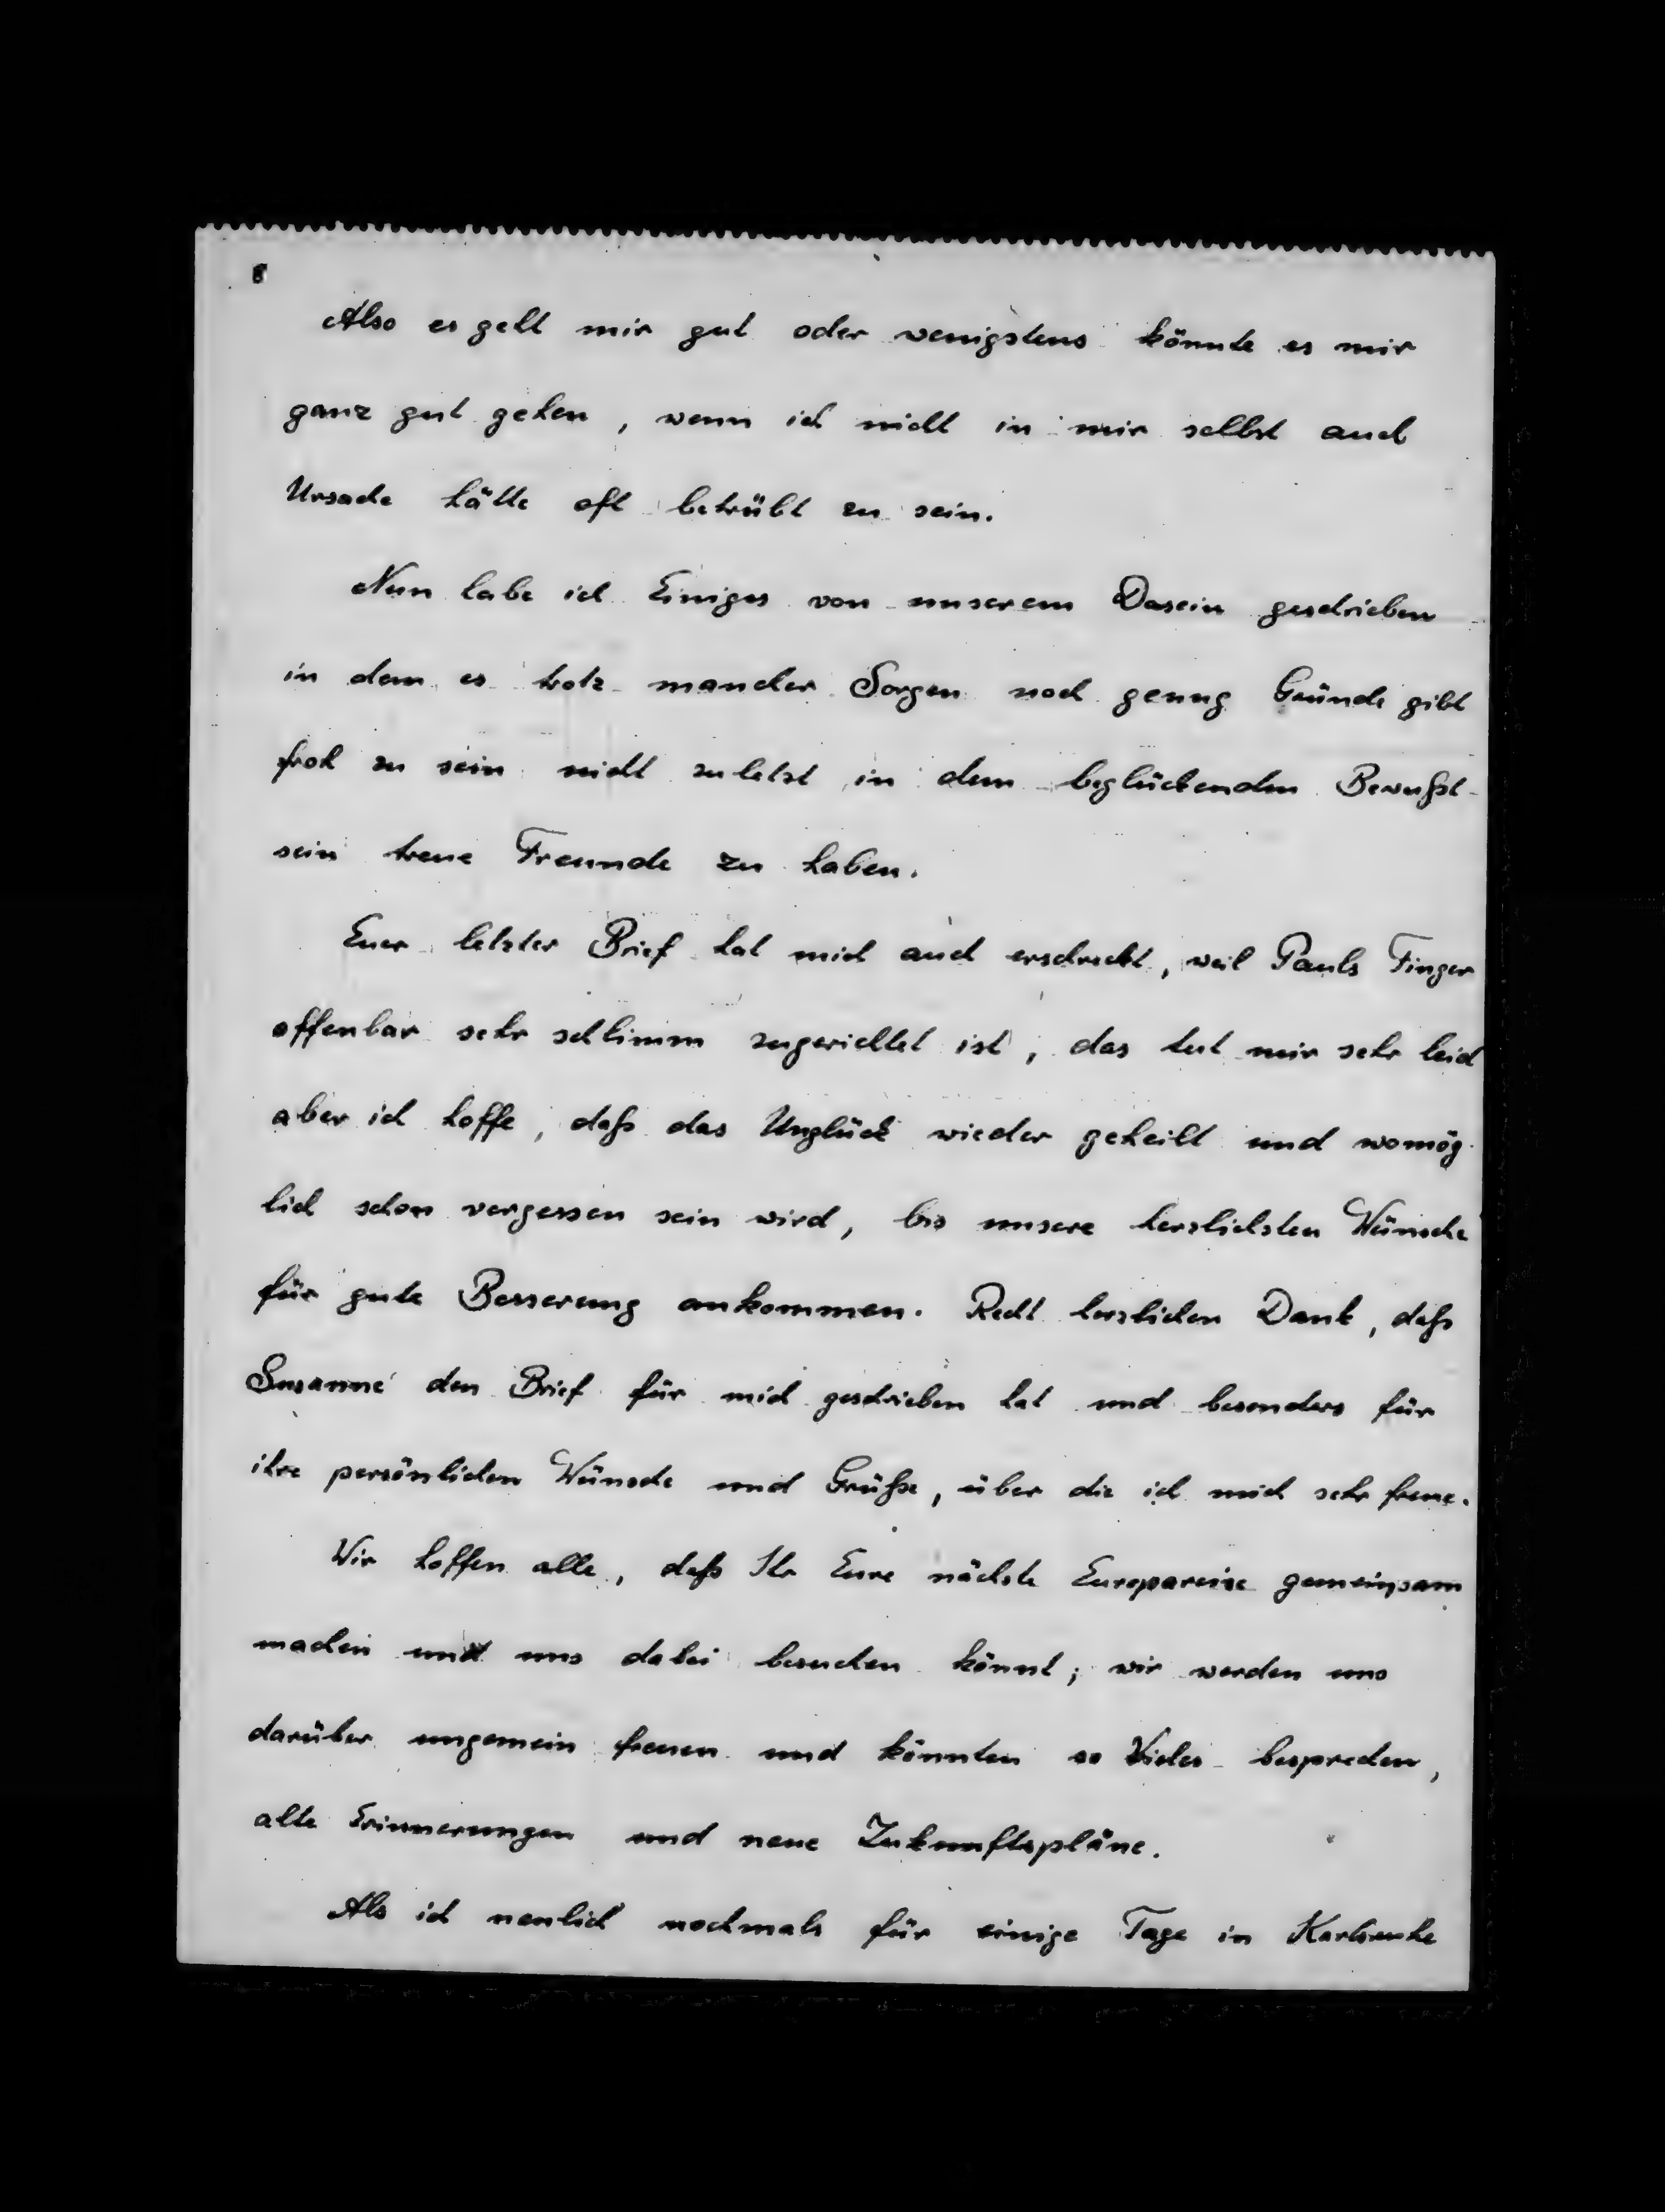 8
Also es geht mir gut oder wenigstens könnte es mir
ganz gut gehen, wenn ich nicht in mir selbst auch
Ursache hätte oft betrübt zu sein.
Nun habe ich Einiges von unserem Dasein geschrieben
in dem es trotz mancher Sorgen noch genug Gründe gibt
froh zu sein nicht zuletzt in dem beglückenden Bewußt-
sein treue Freunde zu haben.
Euer letzter Brief hat mich auch erschreckt, weil Pauls Finger
offenbar sehr schlimm zugerichtet ist, das tut mir sehr leid
aber ich hoffe, daß das Unglück wieder geheilt und womög-
lich schon vergessen sein wird, bis unsere herzlichsten Wünsche
für gute Besserung ankommen. Recht herzlichen Dank, daß
Susanne den Brief für mich geschrieben hat und besonders für
ihre persönlichen Wünsche und Grüße, über die ich mich sehr freue.
Wir hoffen alle, daß Ihr Eure nächste Europareise gemeinsam
machen und uns dabei besuchen könnt; wir werden uns
darüber ungemein freuen und könnten so Vieles besprechen,
alte Erinnerungen und neue Zukunftspläne.
Als ich neulich nochmals für einige Tage in Karlsruhe